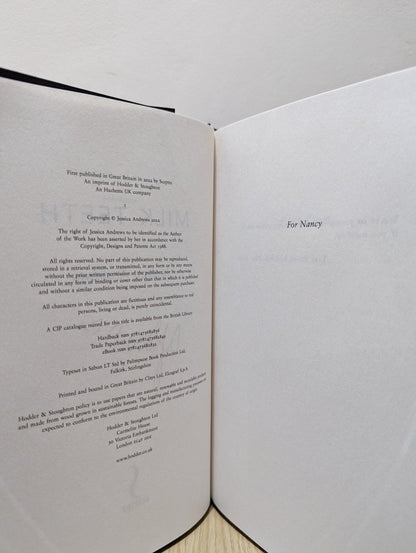 First published in Great Britain in 2022 by Sceptre
An imprint of Hodder & Stoughton
An Hachette UK company
1
Copyright © Jessica Andrews 2022
The right of Jessica Andrews to be identified as the Author
of the Work has been asserted by her in accordance with the
Copyright, Designs and Patents Act 1988.
All rights reserved. No part of this publication may be reproduced,
stored in a retrieval system, or transmitted, in any form or by any means
without the prior written permission of the publisher, nor be otherwise
circulated in any form of binding or cover other than that in which it is published
and without a similar condition being imposed on the subsequent purchaser.
All characters in this publication are fictitious and any resemblance to real
persons, living or dead, is purely coincidental.
A CIP catalogue record for this title is available from the British Library
Hardback ISBN
Trade Paperback ISBN
eBook ISBN
Typeset in Sabon LT Std by Palimpsest Book Production Ltd,
Falkirk, Stirlingshire
Printed and bound in Great Britain by Clays Ltd, Elcograf S.p.A.
Hodder & Stoughton policy is to use papers that are natural, renewable and recyclable products
and made from wood grown in sustainable forests. The logging and manufacturing processes are
expected to conform to the environmental regulations of the country of origin.
Hodder & Stoughton Ltd
Carmelite House
50 Victoria Embankment
London EC4Y 0DZ
www.hodder.co.uk
For Nancy